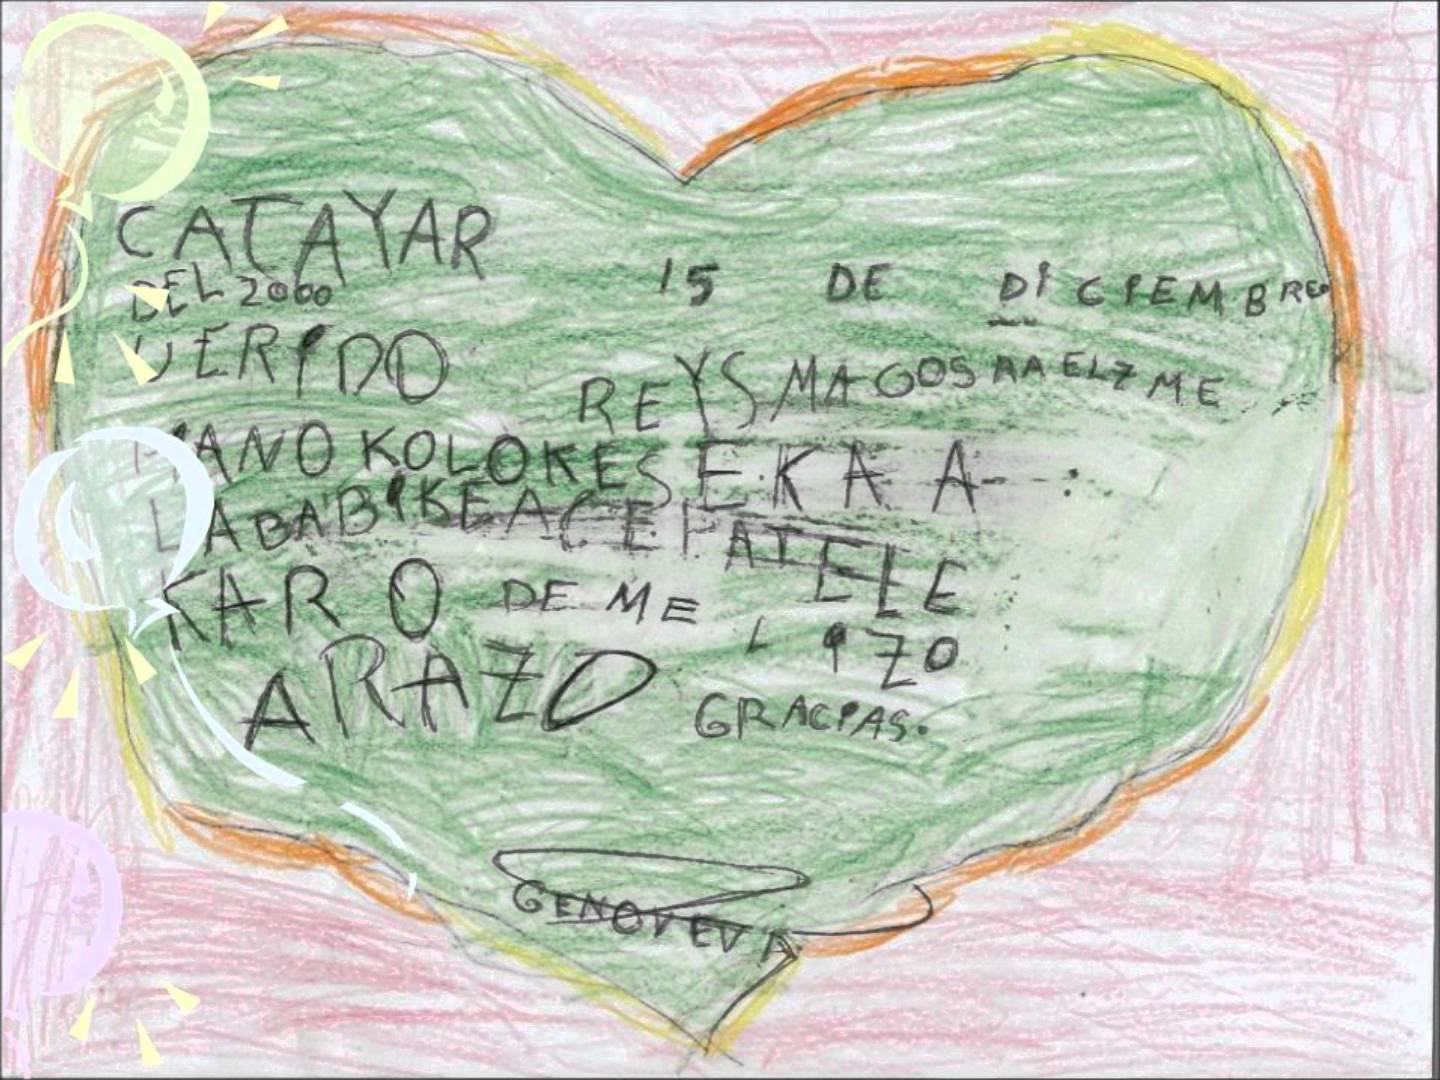 CATAYAR 15 DE DICIEMBRE
DEL 2000
UERIDO REYS MAGOS RAELZ ME
MANO KOLOKESEKA A
LABABIKEACEPATELE
KARO DE ME LIZO
ARAZO GRACIAS.
GENOVEVA